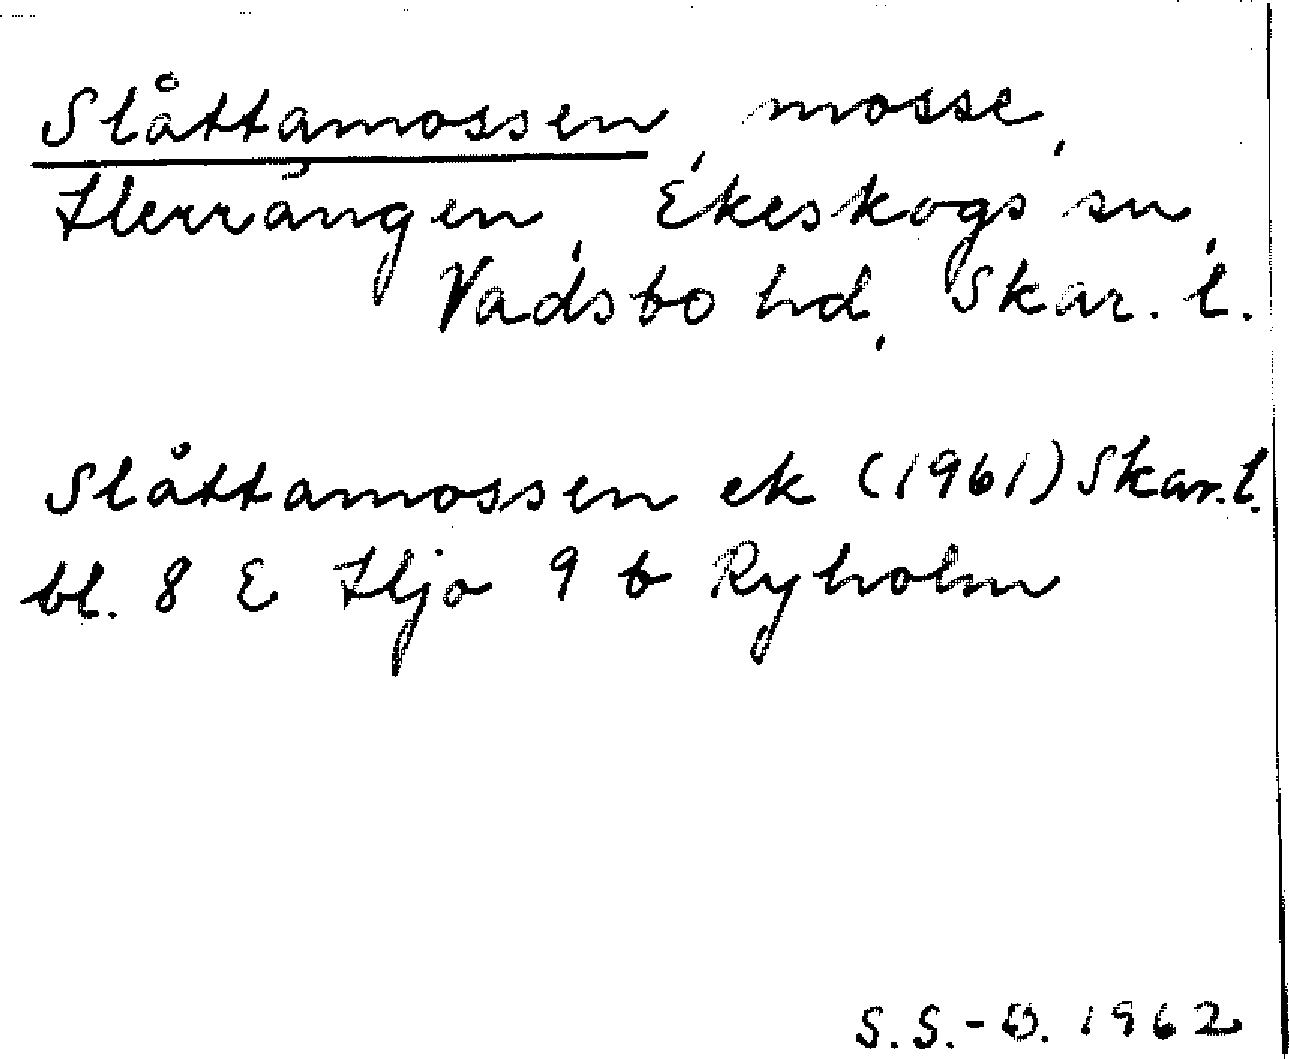 Slåttamossen, mosse,
Herrängen, Ekeskogs sn,
Vadsbo hd, Skar. l.
Slåttamossen ek (1961) Skar. l.
bl. 8 E Hjo 9 b Ryholm
S.S.-Ö. 1962